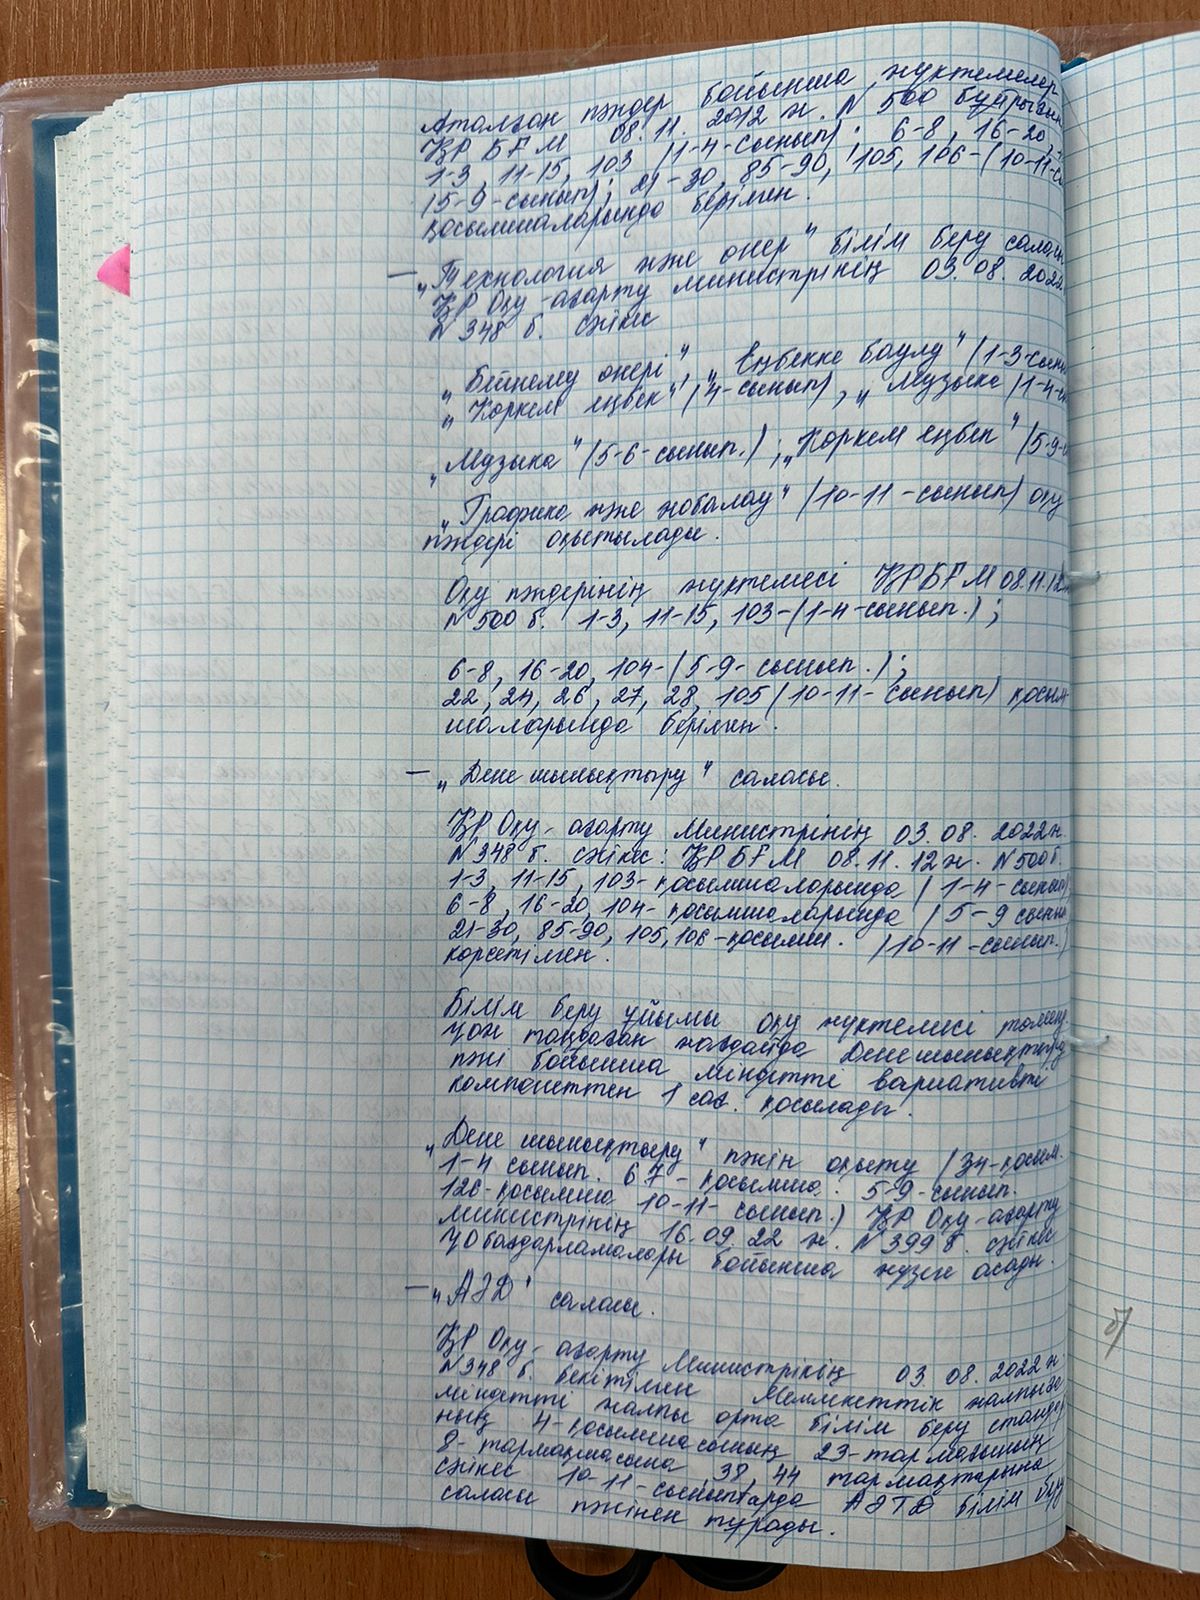 Аталған пәндер бойынша жүктемелер
ҚР БҒМ 08.11.2012 ж. N 500 бұйрығын
1-3, 11-15, 103 (1-4-сынып). 6-8, 16-20,
(5-9-сынып); 21-30, 85-90, 105, 106-(10-11-с
қосымшаларында берілген.
— „Технология және өнер" білім беру салас
ҚР Оқу-ағарту министрінің 03.08.2022
N 348 б. сәйкес
„Бейнелеу өнері", „Еңбекке баулу" (1-3-сын
„Көркем еңбек" (4-сынып), „Музыка (1-4-с
„Музыка" (5-6-сынып.); „Көркем еңбек" (5-9-с
„Графика және жобалау" (10-11-сынып) оқу
пәндері оқытылады.
Оқу пәндерінің жүктемесі ҚР БҒМ 08.11.12
N 500 б. 1-3, 11-15, 103-(1-4-сынып.);
6-8, 16-20, 104-(5-9-сынып.);
22, 24, 26, 27, 28, 105 (10-11-сынып) қосым
шаларында берілген.
— „Дене шынықтыру" саласы.
ҚР Оқу-ағарту Министрінің 03.08.2022ж.
N 348 б. сәйкес: ҚР БҒМ 08.11.12ж. N 500б.
1-3, 11-15, 103-қосымшаларында (1-4-сынып)
6-8, 16-20, 104-қосымшаларында (5-9 сынып
21-30, 85-90, 105, 106-қосымш. (10-11-сынып.)
көрсетілген.
Білім беру ұйымы оқу жүктемесі төмен
ҮОЖ таңдаған жағдайда Дене шынықтыру
пәні бойынша міндетті вариативті
компоненттен 1 сағ. қосылады.
„Дене шынықтыру" пәнін оқыту (34-қосым.
1-4 сынып. 67-қосымша. 5-9-сынып.
126-қосымша 10-11-сынып.) ҚР Оқу-ағарту
министрінің 16.09.22 ж. N 399 б. сәйкес
ҮОбағдарламалары бойынша жүзеге асады.
— „АӘД" саласы.
ҚР Оқу-ағарту Министрінің 03 08.2022ж.
N 348 б. бекітілген Мемлекеттік жалпыға
міндетті жалпы орта білім беру стандар
ның 4-қосымшасының 23-тармағының
8-тармақшасына, 38, 44 тармақтарына
сәйкес 10-11-сыныптарда АӘТД білім беру
саласы пәнінен тұрады.